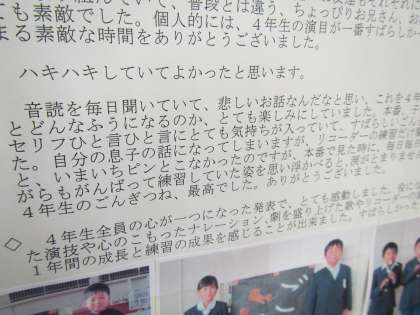 んでいて、普段とは違う、ちょっぴりお兄さん、
ても素敵でした。個人的には、4年生の演目が一番すばらしか
まる素敵な時間をありがとうございました。
ハキハキしていてよかったと思います。
音読を毎日聞いていて、悲しいお話なんだなと思い、これを4年
とどんなふうになるのか、とても楽しみにしていました。本番
セリフひと言ひと言にとても気持ちが入っていて、すばらしい
た。自分の息子の話になってしまいますが、リコーダーの練習を
と、いまいちピンとこなかったのですが、本番で見た時に、毎日毎日
がらもがんばって練習していた姿を思い浮かべると、涙がとまりませ
4年生のごんぎつね、最高でした。ありがとうございました。
◇ 4年生全員の心が一つになった発表で、とても感動しました。役に
た演技や心のこもったナレーション、劇を盛り上げた歌やリコーダー
1年間の成長と練習の成果を感じることが出来ました。すばらしかった